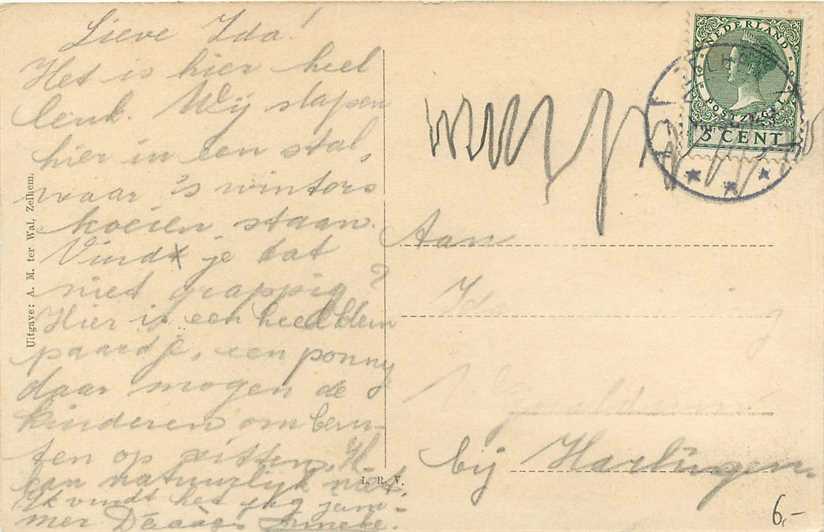 Lieve Ida!
Het is hier heel
leuk. Wij slapen
hier in een stal,
waar 's winters
koeien staan.
Vindt je dat
niet grappig?
Hier is een heel klein
paardje, een ponny
daar mogen de
kinderen om beur-
ten op zitten. Ik
kan natuurlijk niet.
Ik vindt het erg jam-
mer
Uitgave: A. M. ter Wal, Zelhem.
I. R. V.
NEDERLAND
POSTZEGEL
5 CENT
Aan
bij Harlingen.
6,-